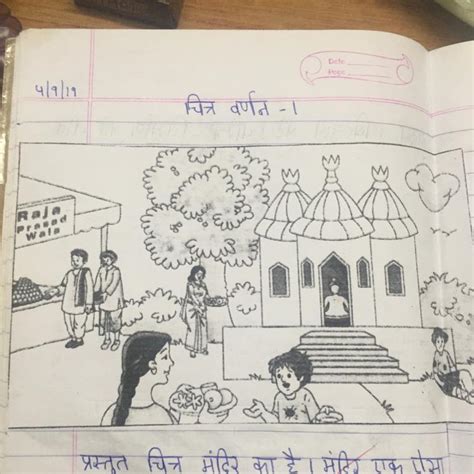 Date
Page
५/९/१९
चित्र वर्णन -1
Raja
Prasad
Wala
प्रस्तुत चित्र मंदिर का है। मंदिर एक ऐसा